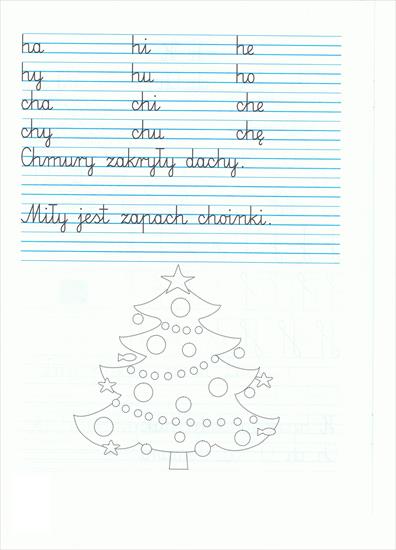 ha hi he
hy hu ho
cha chi che
chy chu chę
Chmury zakryły dachy.
Miły jest zapach choinki.